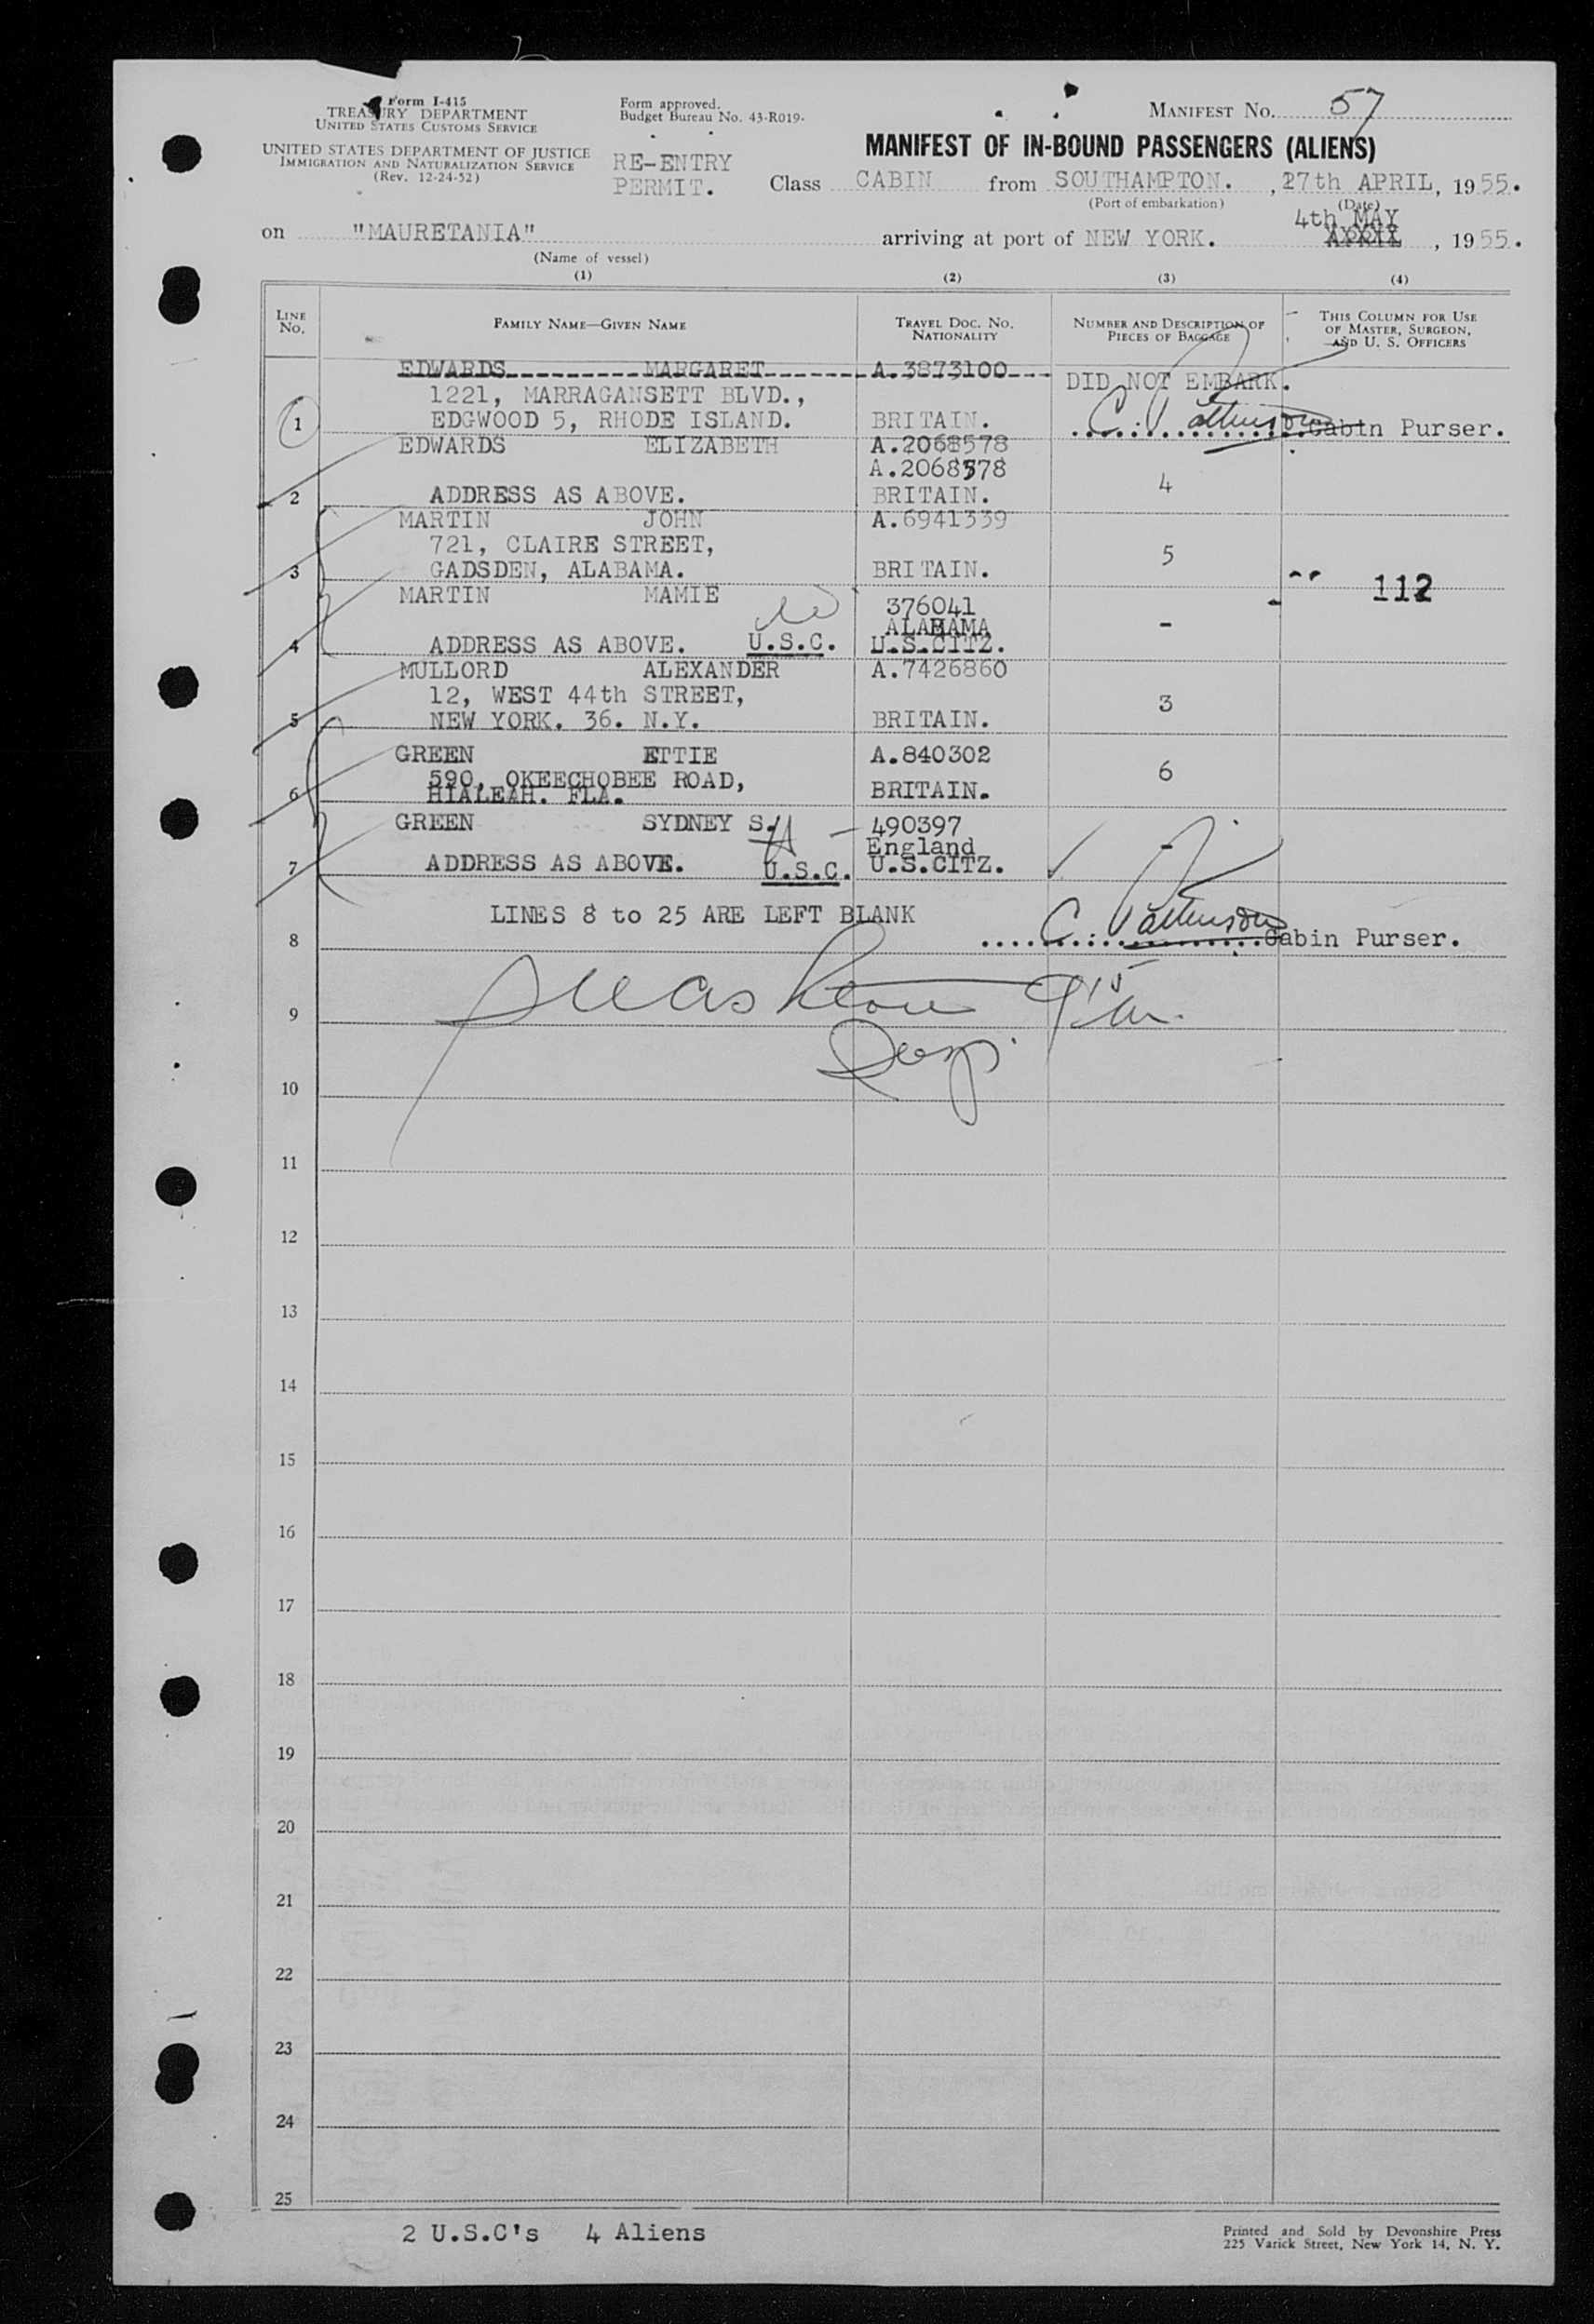 Form I-415
TREASURY DEPARTMENT
UNITED STATES CUSTOMS SERVICE
UNITED STATES DEPARTMENT OF JUSTICE
IMMIGRATION AND NATURALIZATION SERVICE
(Rev. 12-24-52)
Form approved.
Budget Bureau No. 43-R019.
RE-ENTRY
PERMIT.
MANIFEST NO. 57
MANIFEST OF IN-BOUND PASSENGERS (ALIENS)
Class CABIN from SOUTHAMPTON. , 27th APRIL, 1955.
(Port of embarkation) (Date)
on "MAURETANIA" arriving at port of NEW YORK. 4th MAY APRIL , 1955.
(Name of vessel)
(1) (2) (3) (4)
LINE No. FAMILY NAME—GIVEN NAME TRAVEL DOC. NO. NATIONALITY NUMBER AND DESCRIPTION OF PIECES OF BAGGAGE THIS COLUMN FOR USE OF MASTER, SURGEON, AND U. S. OFFICERS
EDWARDS---------MARGARET------A.3873100---
DID NOT EMBARK.
1221, MARRAGANSETT BLVD.,
1 EDGWOOD 5, RHODE ISLAND. BRITAIN. C. Cabin Purser.
EDWARDS ELIZABETH A.2068578
A.2068578
2 ADDRESS AS ABOVE. BRITAIN. 4
MARTIN JOHN A.6941339
721, CLAIRE STREET,
3 GADSDEN, ALABAMA. BRITAIN. 5
112
MARTIN MAMIE 376041
ALABAMA
4 ADDRESS AS ABOVE. U.S.C. U.S.CITZ. -
MULLORD ALEXANDER A.7426860
12, WEST 44th STREET,
5 NEW YORK. 36. N.Y. BRITAIN. 3
GREEN ETTIE A.840302
590, OKEECHOBEE ROAD,
6 HIALEAH. FLA. BRITAIN. 6
GREEN SYDNEY S. 490397
England
7 ADDRESS AS ABOVE. U.S.C. U.S.CITZ. -
LINES 8 to 25 ARE LEFT BLANK
8 C. Cabin Purser.
9
10
11
12
13
14
15
16
17
18
19
20
21
22
23
24
25
2 U.S.C's 4 Aliens
Printed and Sold by Devonshire Press
225 Varick Street, New York 14, N. Y.